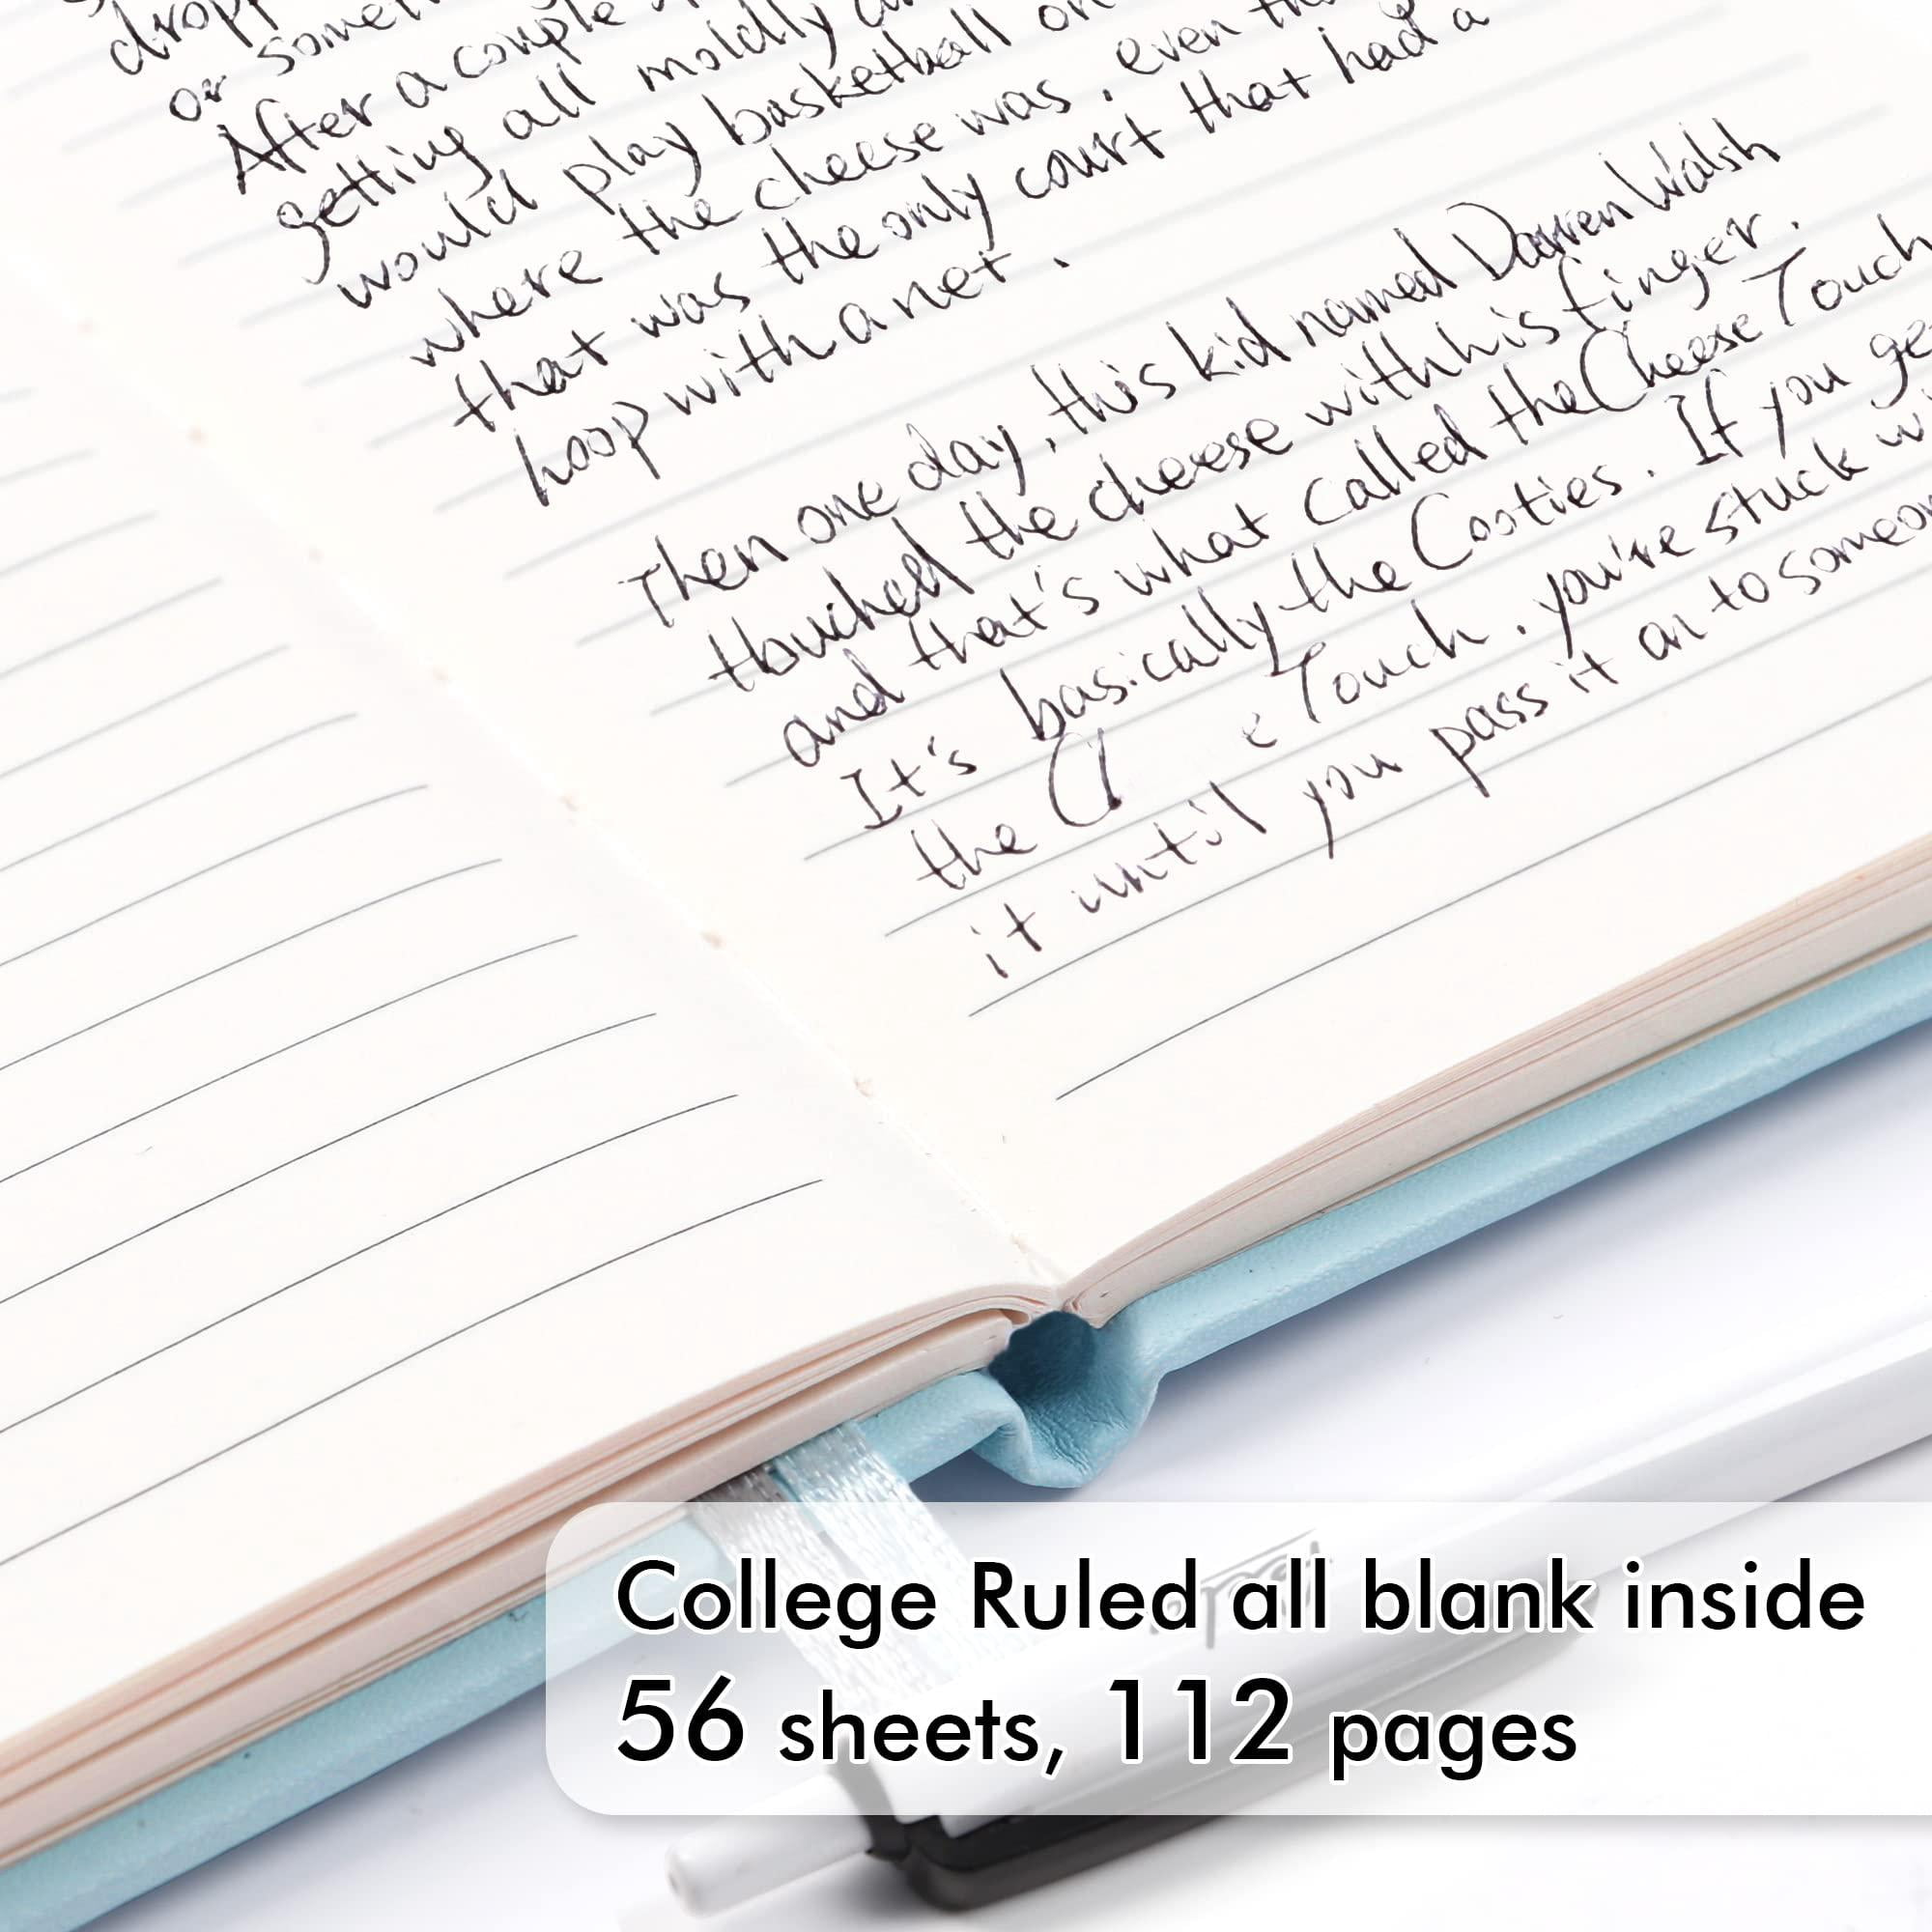 or
After a couple
getting all moldy
would play basketball on
where the cheese was. even
that was the only court that had a
hoop with a net.
Then one day, this kid named Darren Walsh
touched the cheese with his finger.
and that's what called the Cheese Touch
It's basically the Cooties. If you
the Touch. you're stuck
it until you pass it on to
College Ruled all blank inside
56 sheets, 112 pages